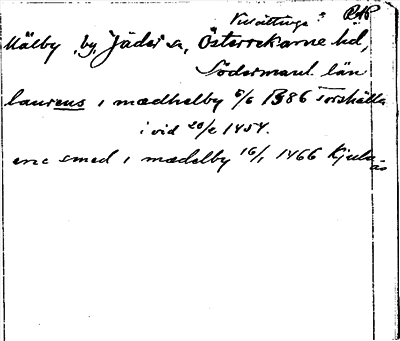 Vivättinge? RAP
Mälby, by, Jäder sn, Österrekarne hd,
Södermanl. län
laurens i mædhelby 6/6 1386 Torshälla
i vid 20/2 1454.
eric smed i mædelby 16/1 1466 Kjula-
ås